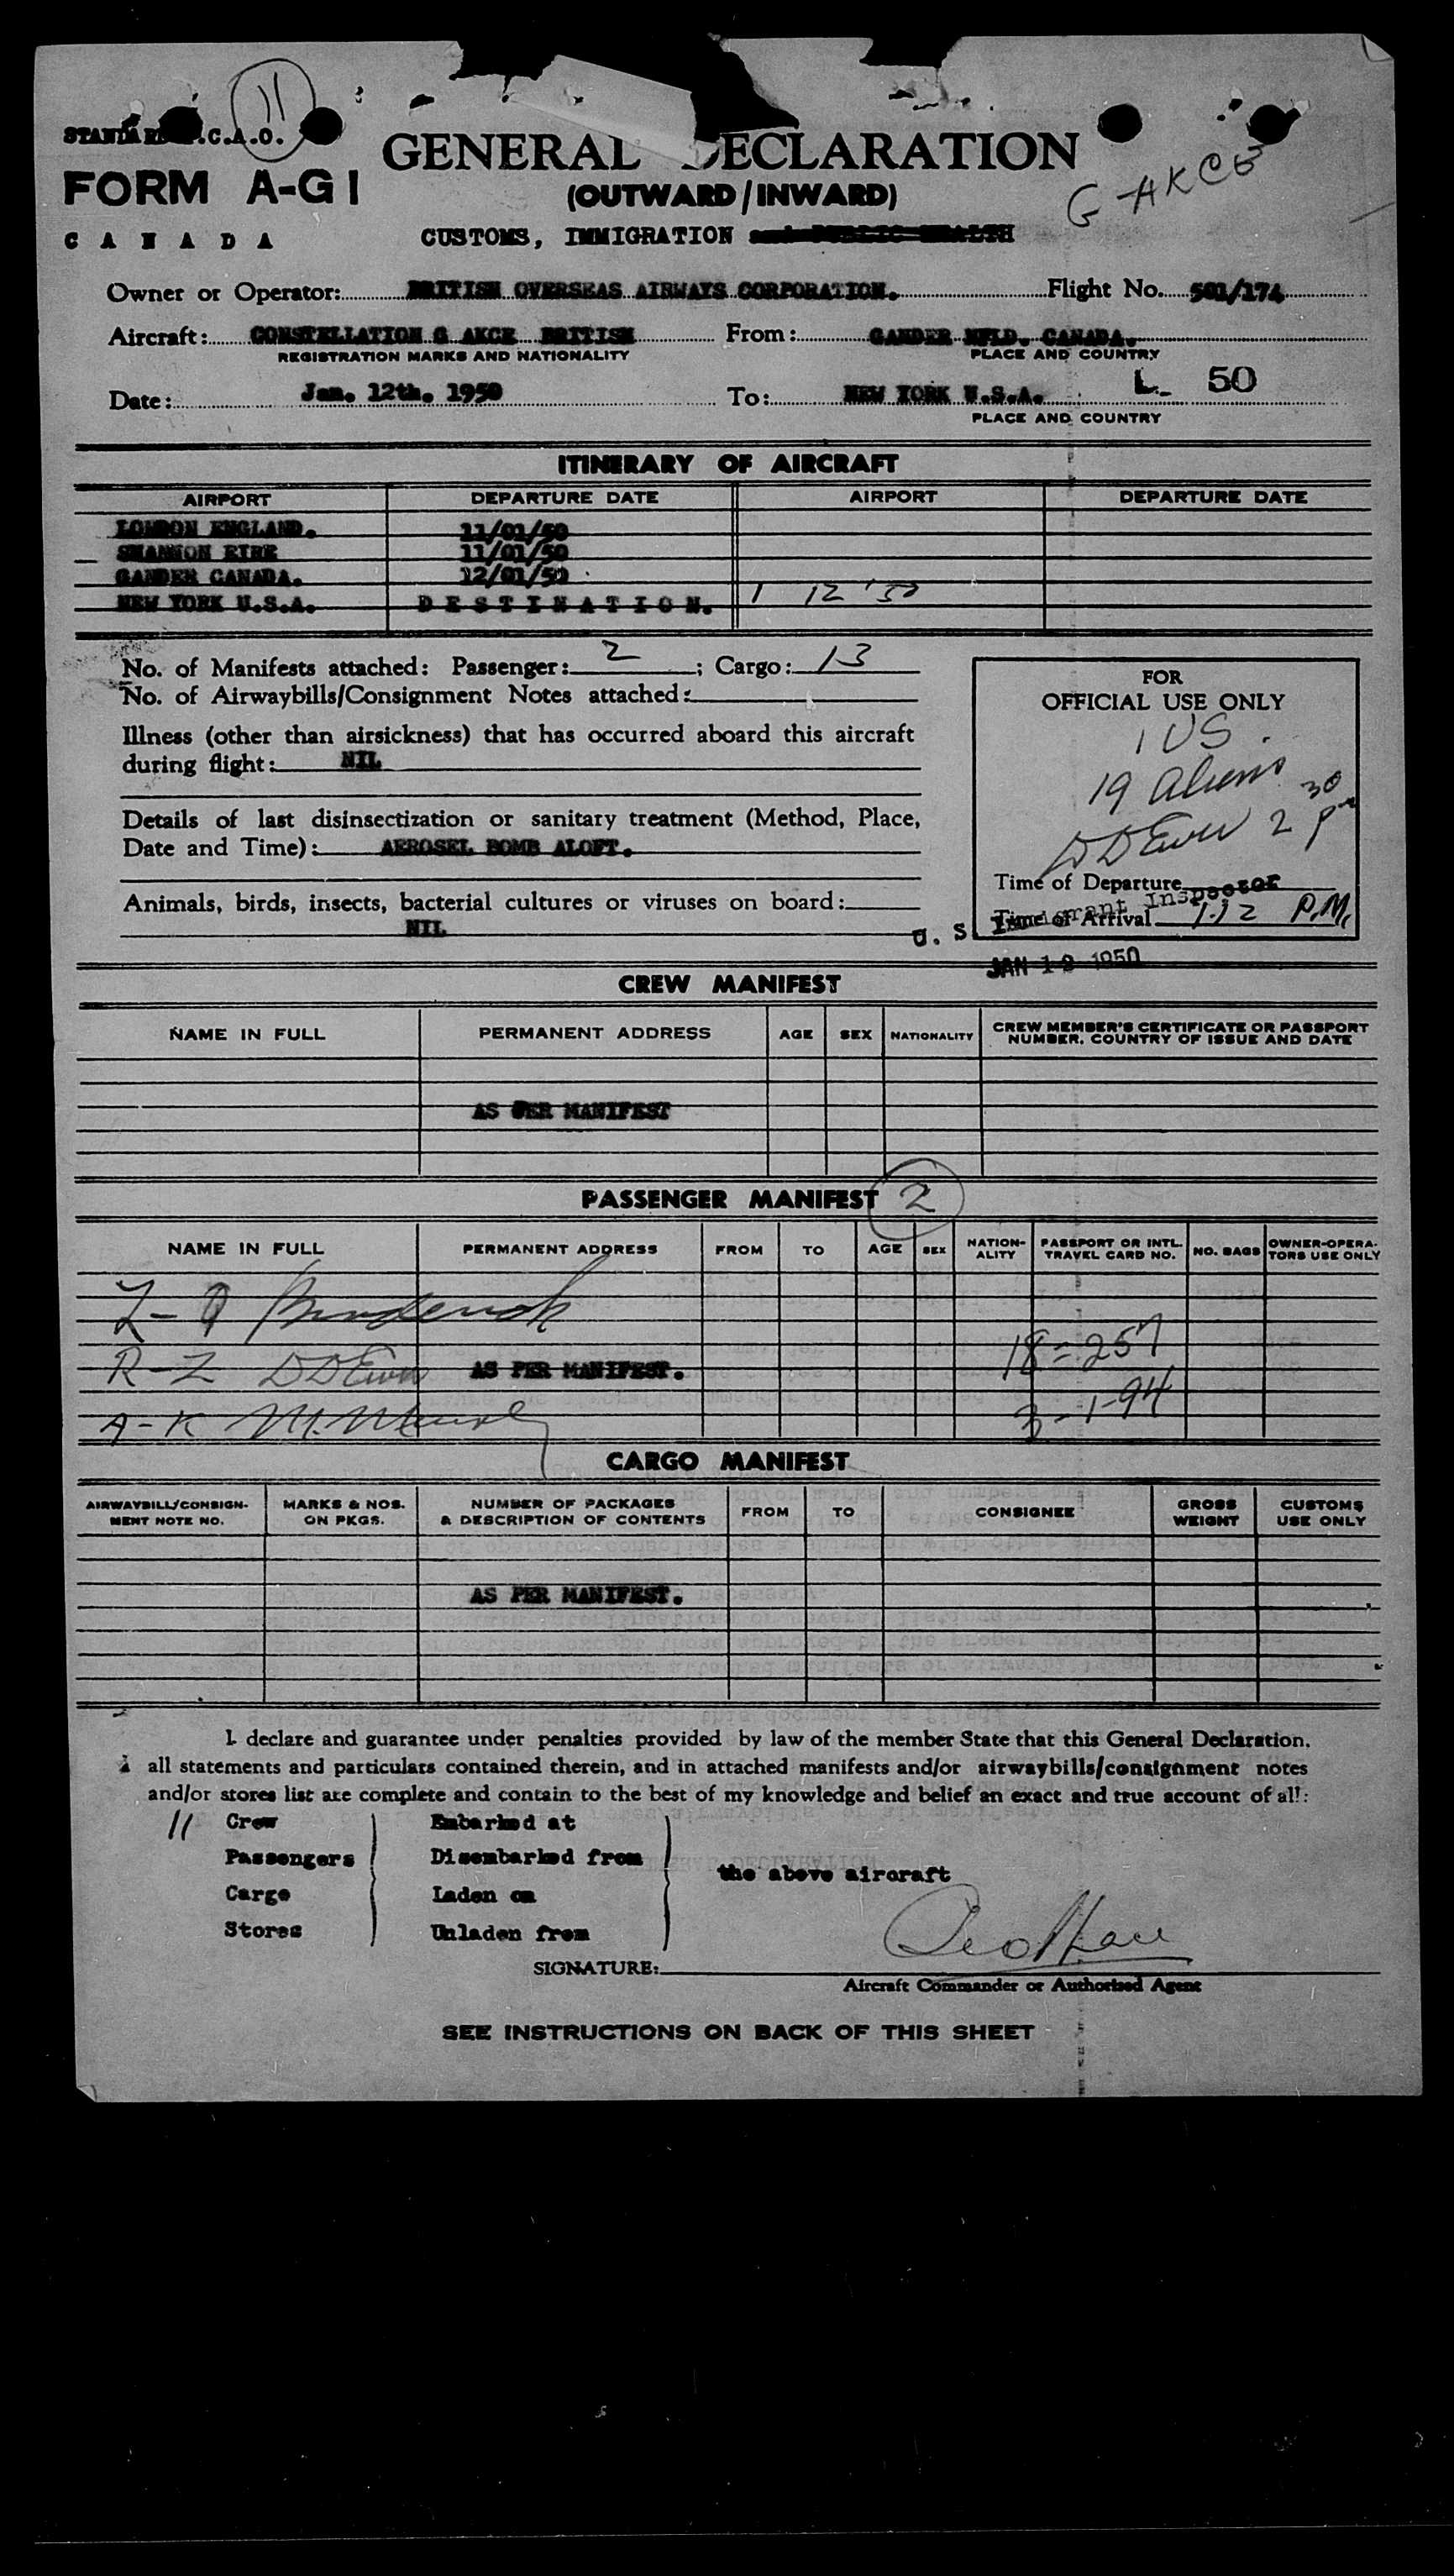 11
STANDARD I.C.A.O.
GENERAL DECLARATION
FORM A-G1
(OUTWARD/INWARD)
G-AKCE
CANADA
CUSTOMS, IMMIGRATION and PUBLIC HEALTH
Owner or Operator: BRITISH OVERSEAS AIRWAYS CORPORATION. Flight No. 501/174
Aircraft: CONSTELLATION G AKCE BRITISH From: GANDER NFLD. CANADA.
REGISTRATION MARKS AND NATIONALITY PLACE AND COUNTRY
L 50
Date: Jan. 12th. 1950 To: NEW YORK U.S.A.
PLACE AND COUNTRY
ITINERARY OF AIRCRAFT
AIRPORT DEPARTURE DATE AIRPORT DEPARTURE DATE
LONDON ENGLAND. 11/01/50
SHANNON EIRE 11/01/50
GANDER CANADA. 12/01/50
NEW YORK U.S.A. DESTINATION. 1 12 '50
No. of Manifests attached: Passenger: 2; Cargo: 13
No. of Airwaybills/Consignment Notes attached:
Illness (other than airsickness) that has occurred aboard this aircraft
during flight: NIL
Details of last disinsectization or sanitary treatment (Method, Place,
Date and Time): AEROSEL BOMB ALOFT.
Animals, birds, insects, bacterial cultures or viruses on board:
NIL
FOR
OFFICIAL USE ONLY
1 US.
19 Aliens
2 30 pm
Time of Departure
Time of Arrival 1.12 P.M.
U. S. Immigrant Inspector
JAN 12 1950
CREW MANIFEST
NAME IN FULL PERMANENT ADDRESS AGE SEX NATIONALITY CREW MEMBER'S CERTIFICATE OR PASSPORT NUMBER, COUNTRY OF ISSUE AND DATE
AS PER MANIFEST
PASSENGER MANIFEST 2
NAME IN FULL PERMANENT ADDRESS FROM TO AGE SEX NATION-ALITY PASSPORT OR INTL. TRAVEL CARD NO. NO. BAGS OWNER-OPERA-TORS USE ONLY
L-Q
R-Z AS PER MANIFEST. 18-257
A-K 3-1-94
CARGO MANIFEST
AIRWAYBILL/CONSIGN-MENT NOTE NO. MARKS & NOS. ON PKGS. NUMBER OF PACKAGES & DESCRIPTION OF CONTENTS FROM TO CONSIGNEE GROSS WEIGHT CUSTOMS USE ONLY
AS PER MANIFEST.
I declare and guarantee under penalties provided by law of the member State that this General Declaration.
all statements and particulars contained therein, and in attached manifests and/or airwaybills/consignment notes
and/or stores list are complete and contain to the best of my knowledge and belief an exact and true account of all:
11 Crew Embarked at
Passengers Disembarked from
the above aircraft
Cargo Laden on
Stores Unladen from
SIGNATURE:
Aircraft Commander or Authorised Agent
SEE INSTRUCTIONS ON BACK OF THIS SHEET